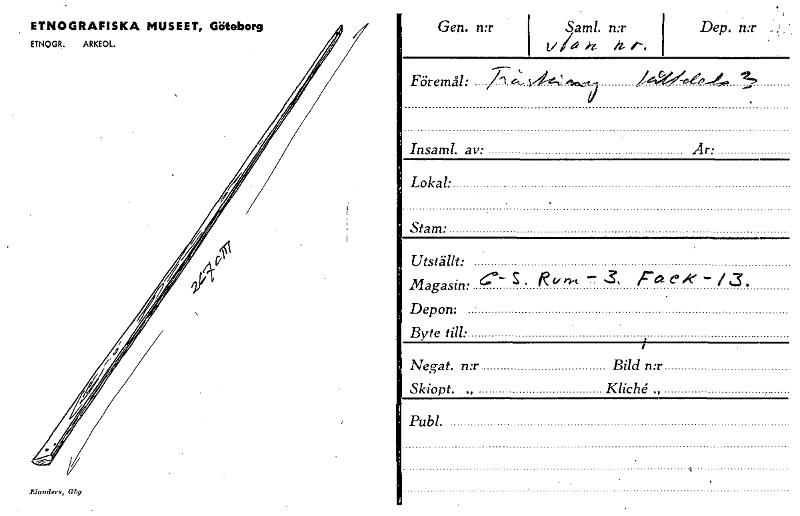 ETNOGRAFISKA MUSEET, Göteborg
ETNOGR. ARKEOL.
Elanders, Gbg
Gen. n:r Saml. n:r Dep. n:r
utan nr.
Föremål:
Insaml. av: År:
Lokal:
Stam:
Utställt:
Magasin: C-S. Rum-3. Fack-13.
Depon:
Byte till:
Negat. n:r Bild n:r
Skiopt. „ Kliché „
Publ.